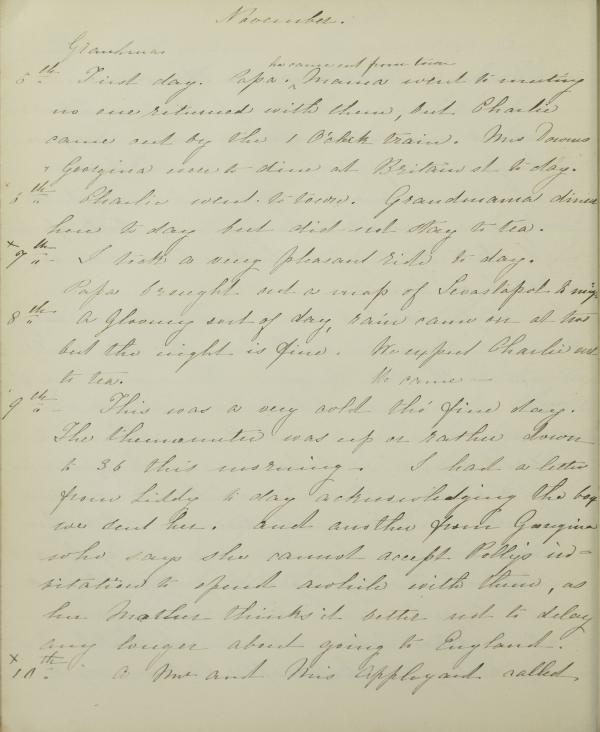 November.
Grandmama
he came out from town
5th First day. Papa & Mama went to meeting
no one returned with them, but Charlie
came out by the 1 O'clock train. Mrs Downs
& Georgina were to dine at Britain st to day.
6th Charlie went to town. Grandmama dines
here to day but did not stay to tea.
x 7th - I took a very pleasant ride to day.
Papa brought out a map of Sevastopol to
8th A gloomy sort of day, rain came on at
but the night is fine. We expect Charlie out
to tea. He came -
9th - This was a very cold tho' fine day.
The thermometer was up or rather down
to 36 this morning. I had a letter
from Liddy to day acknowledging the
we sent her. And another from Georgina
who says she cannot accept Polly's in=
vitation to spend awhile with them, as
her Mother thinks it better not to delay
any longer about going to England.
x 10th A Mr and Miss Appleyard called